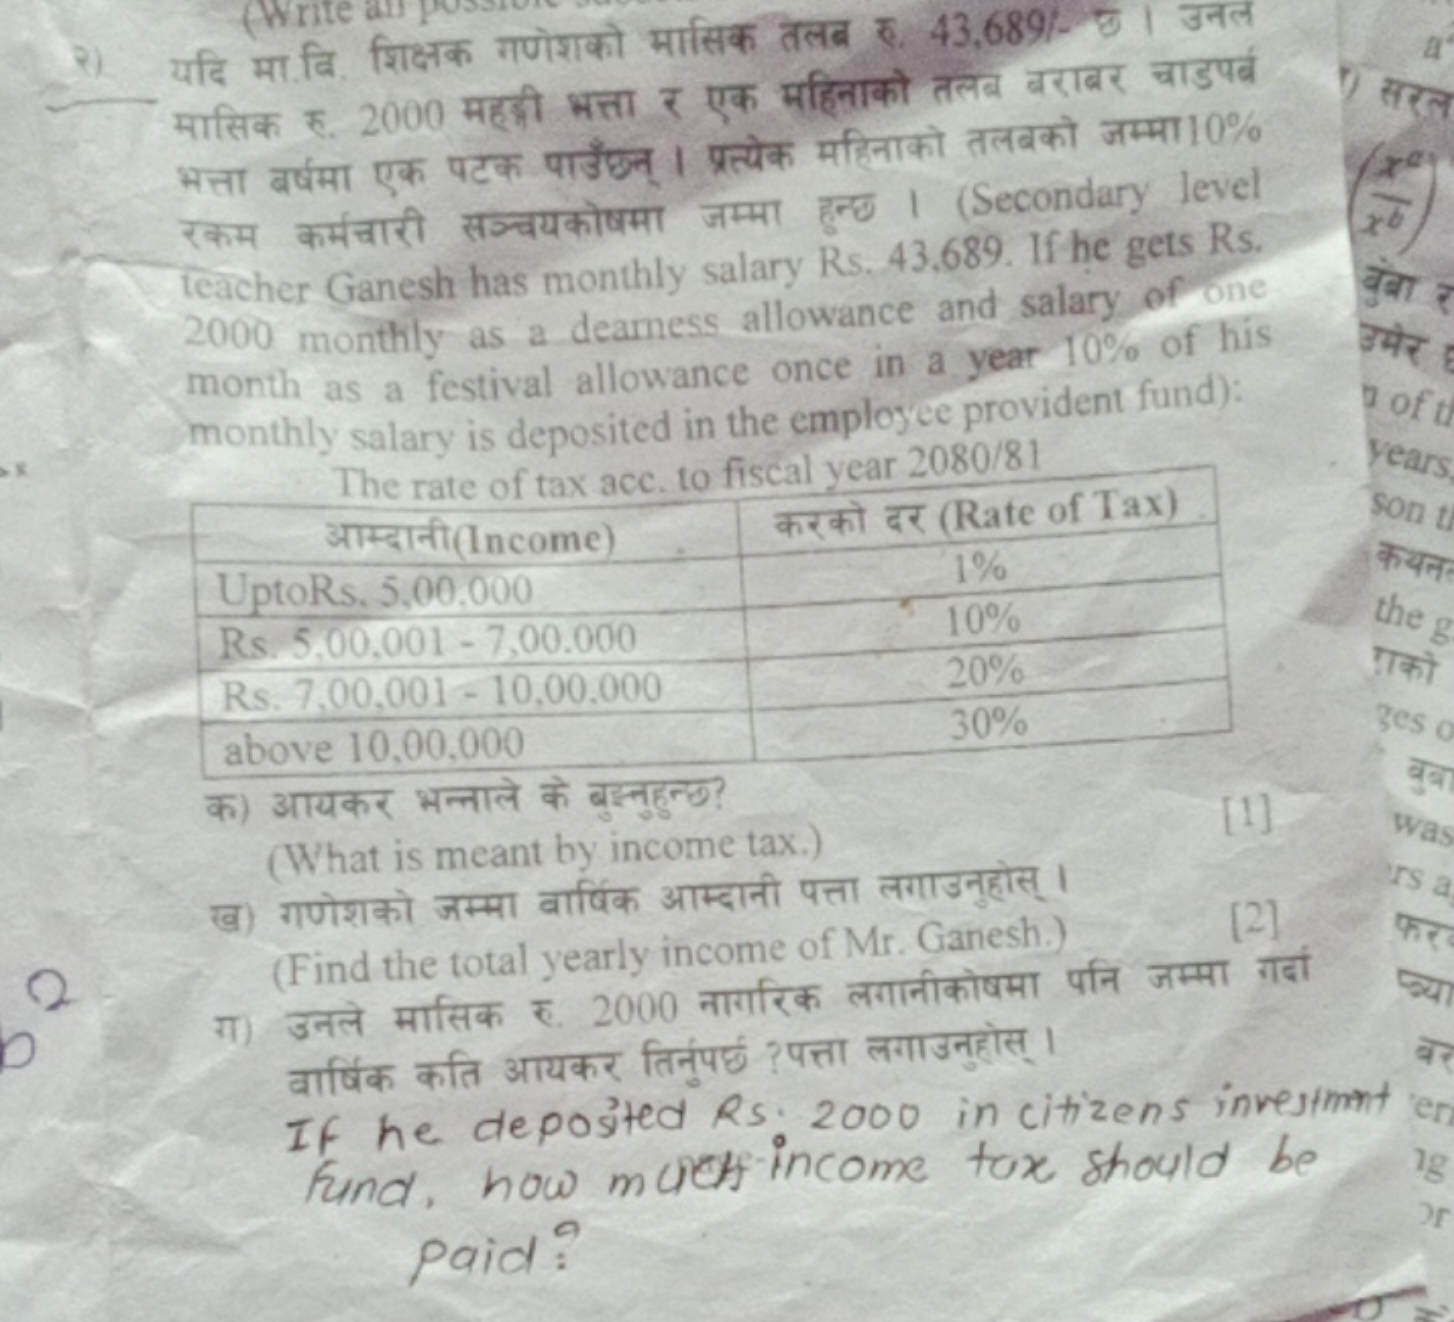 (Write all possible
२) यदि मा.वि. शिक्षक गणेशको मासिक तलब रु. 43,689/- छ । उनले
मासिक रु. 2000 महङ्गी भत्ता र एक महिनाको तलब बराबर चाडपर्व
भत्ता बर्षमा एक पटक पाउँछन् । प्रत्येक महिनाको तलबको जम्मा10%
रकम कर्मचारी सञ्चयकोषमा जम्मा हुन्छ । (Secondary level
teacher Ganesh has monthly salary Rs. 43,689. If he gets Rs.
2000 monthly as a dearness allowance and salary of one
month as a festival allowance once in a year 10% of his
monthly salary is deposited in the employee provident fund):
The rate of tax acc. to fiscal year 2080/81
आम्दानी(Income) करको दर (Rate of Tax)
UptoRs. 5,00,000 1%
Rs. 5,00,001 - 7,00,000 10%
Rs. 7,00,001 - 10,00,000 20%
above 10,00,000 30%
क) आयकर भन्नाले के बुझ्नुहुन्छ?
(What is meant by income tax.) [1]
ख) गणेशको जम्मा वार्षिक आम्दानी पत्ता लगाउनुहोस् ।
(Find the total yearly income of Mr. Ganesh.) [2]
ग) उनले मासिक रु. 2000 नागरिक लगानीकोषमा पनि जम्मा गर्दा
वार्षिक कति आयकर तिर्नुपर्छ ?पत्ता लगाउनुहोस् ।
If he deposited Rs. 2000 in citizens investment
fund, how much income tax should be
paid?
सरल
(x^a/x^b)
बुबा
उमेर
of t
years
son t
the g
was